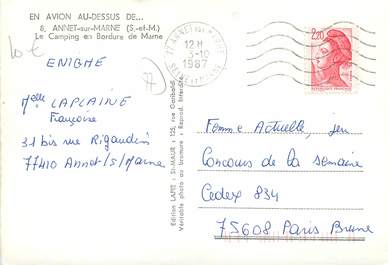 EN AVION AU-DESSUS DE...
6, ANNET-sur-MARNE (S.-et-M.)
Le Camping en Bordure de Marne
10 €
77
ENIGME
Melle LAPLAINE
Françoise
31 bis rue Rigaudin
77410 Annet/s/Marne
Edition LAPIE : St-MAUR : 125, rue Garibaldi
Véritable photo au bromure : Reprod. Interdite
12 H
3-10
1987
SEINE ET MARNE
2,20
Femme Actuelle, jeu
Concours de la semaine
Cedex 834
75608 Paris Brune